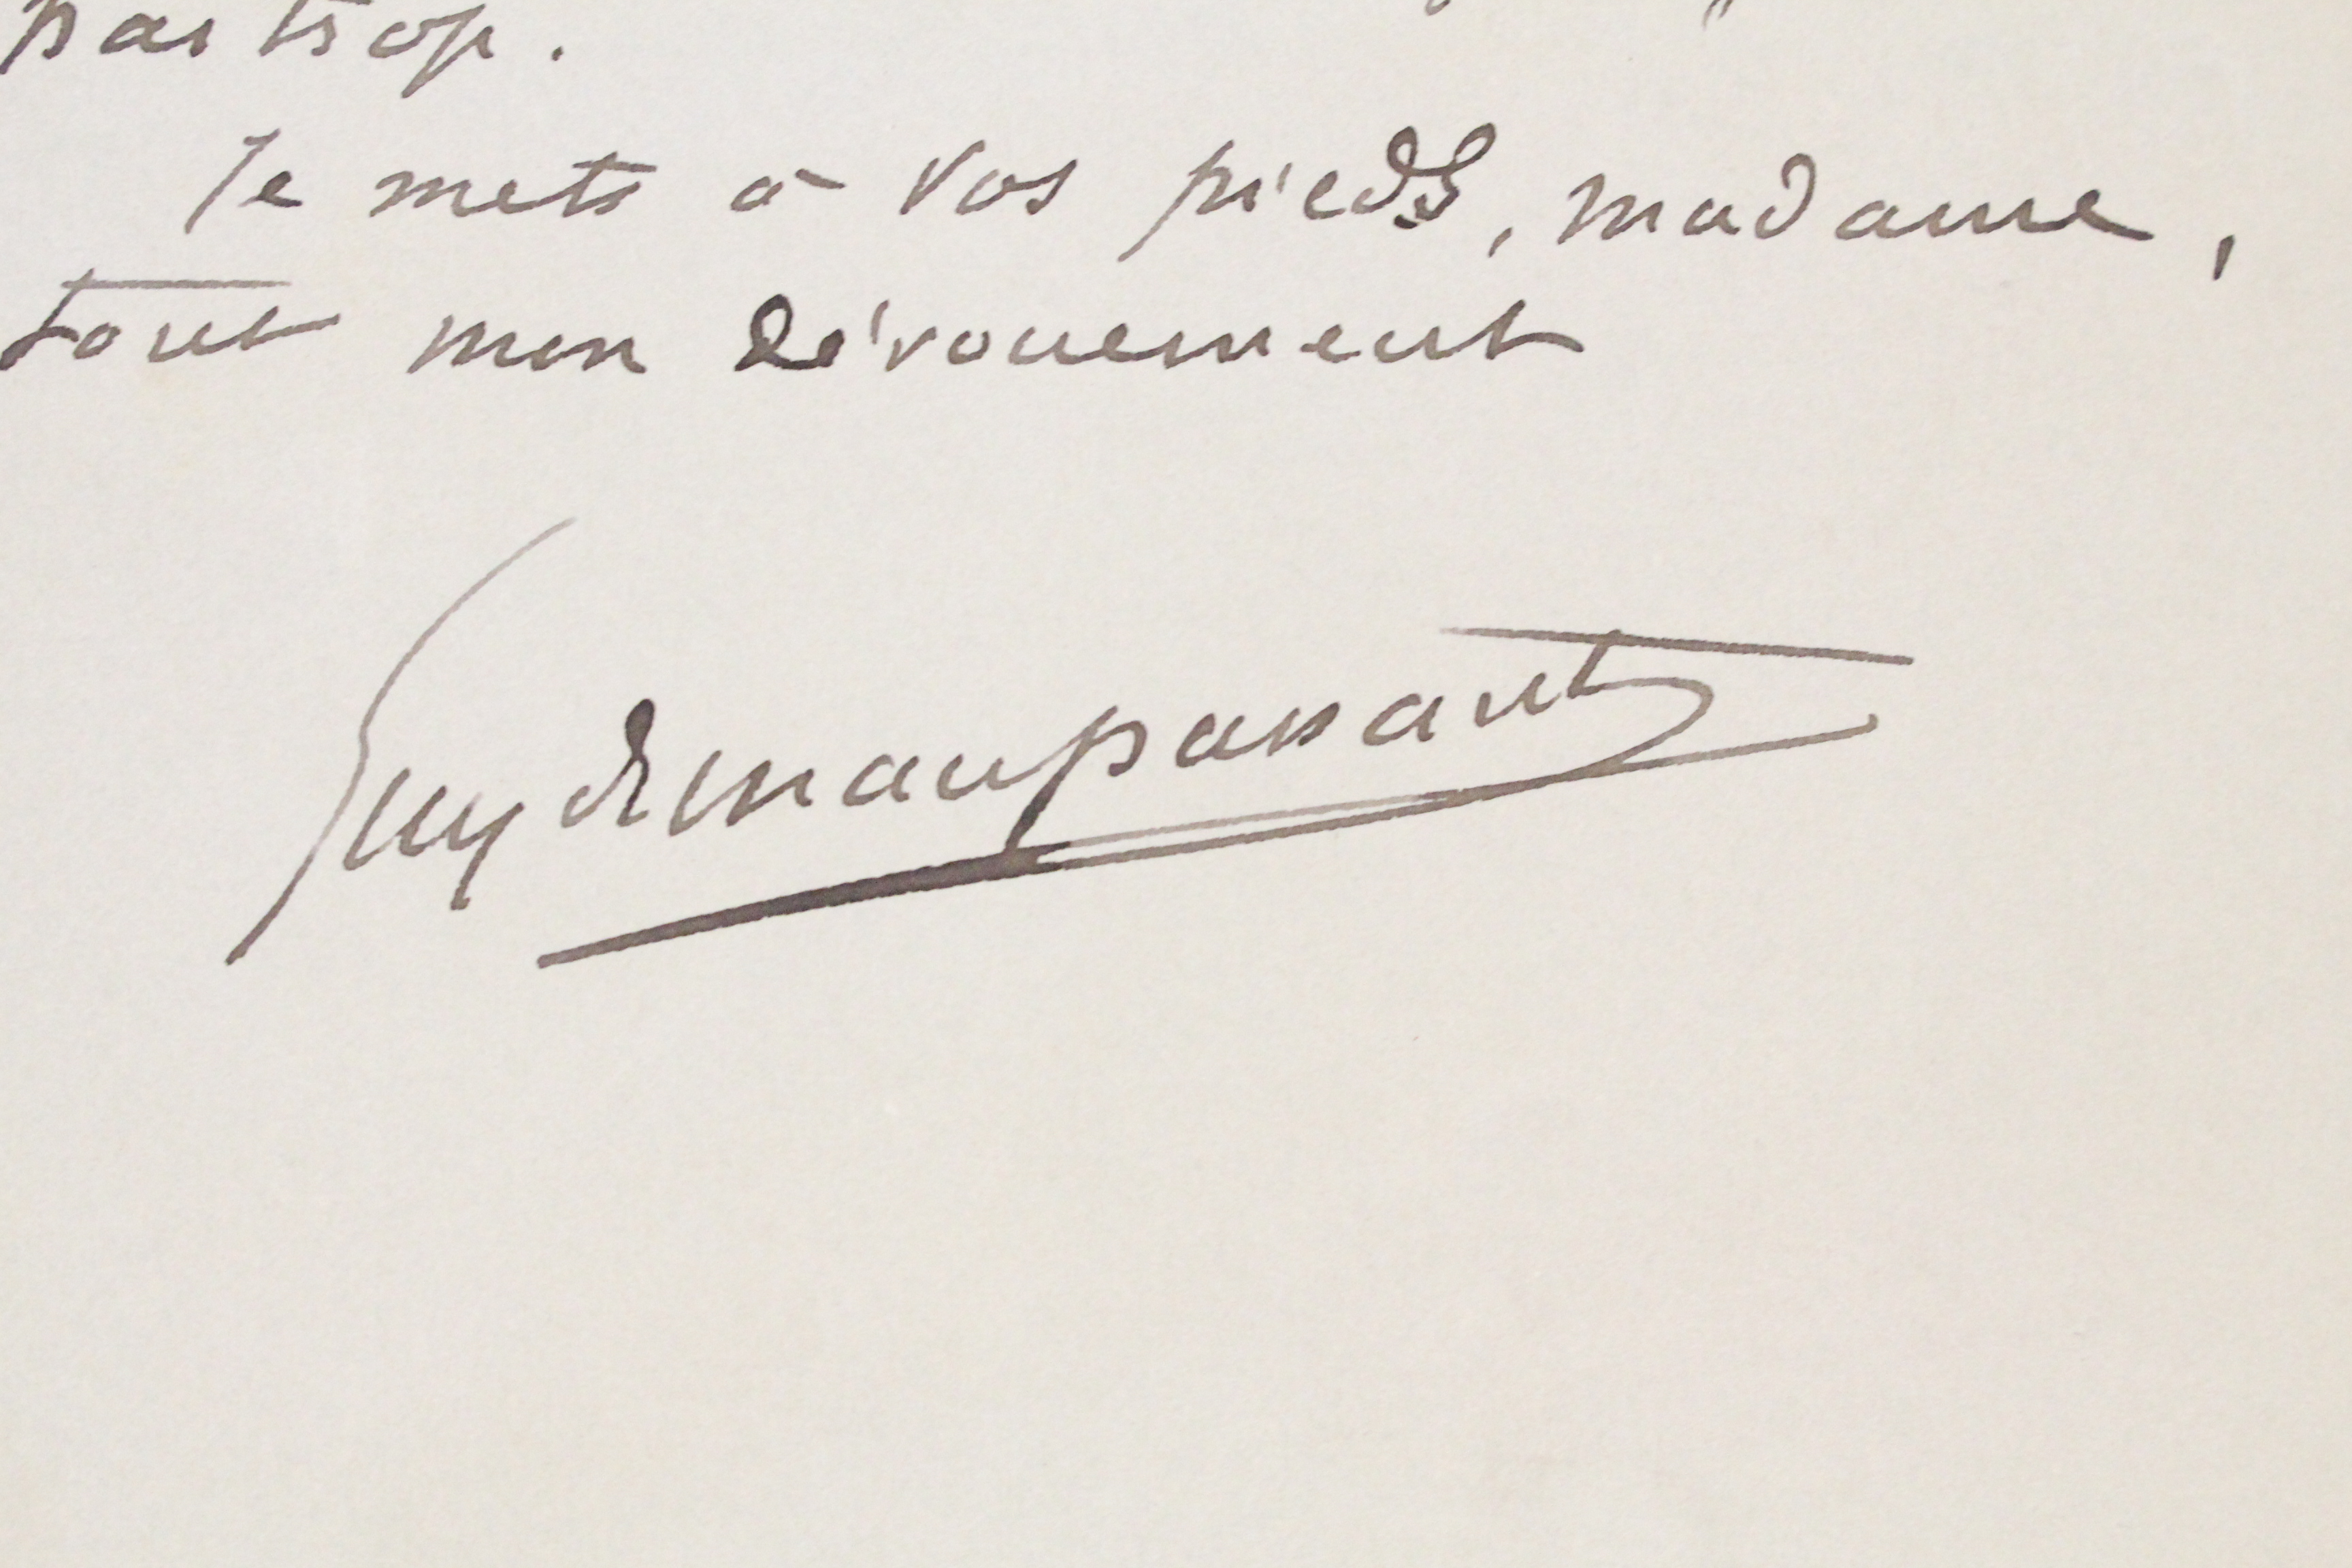 pas trop.
Je mets à vos pieds, madame,
tout mon dévouement
Guy de Maupassant